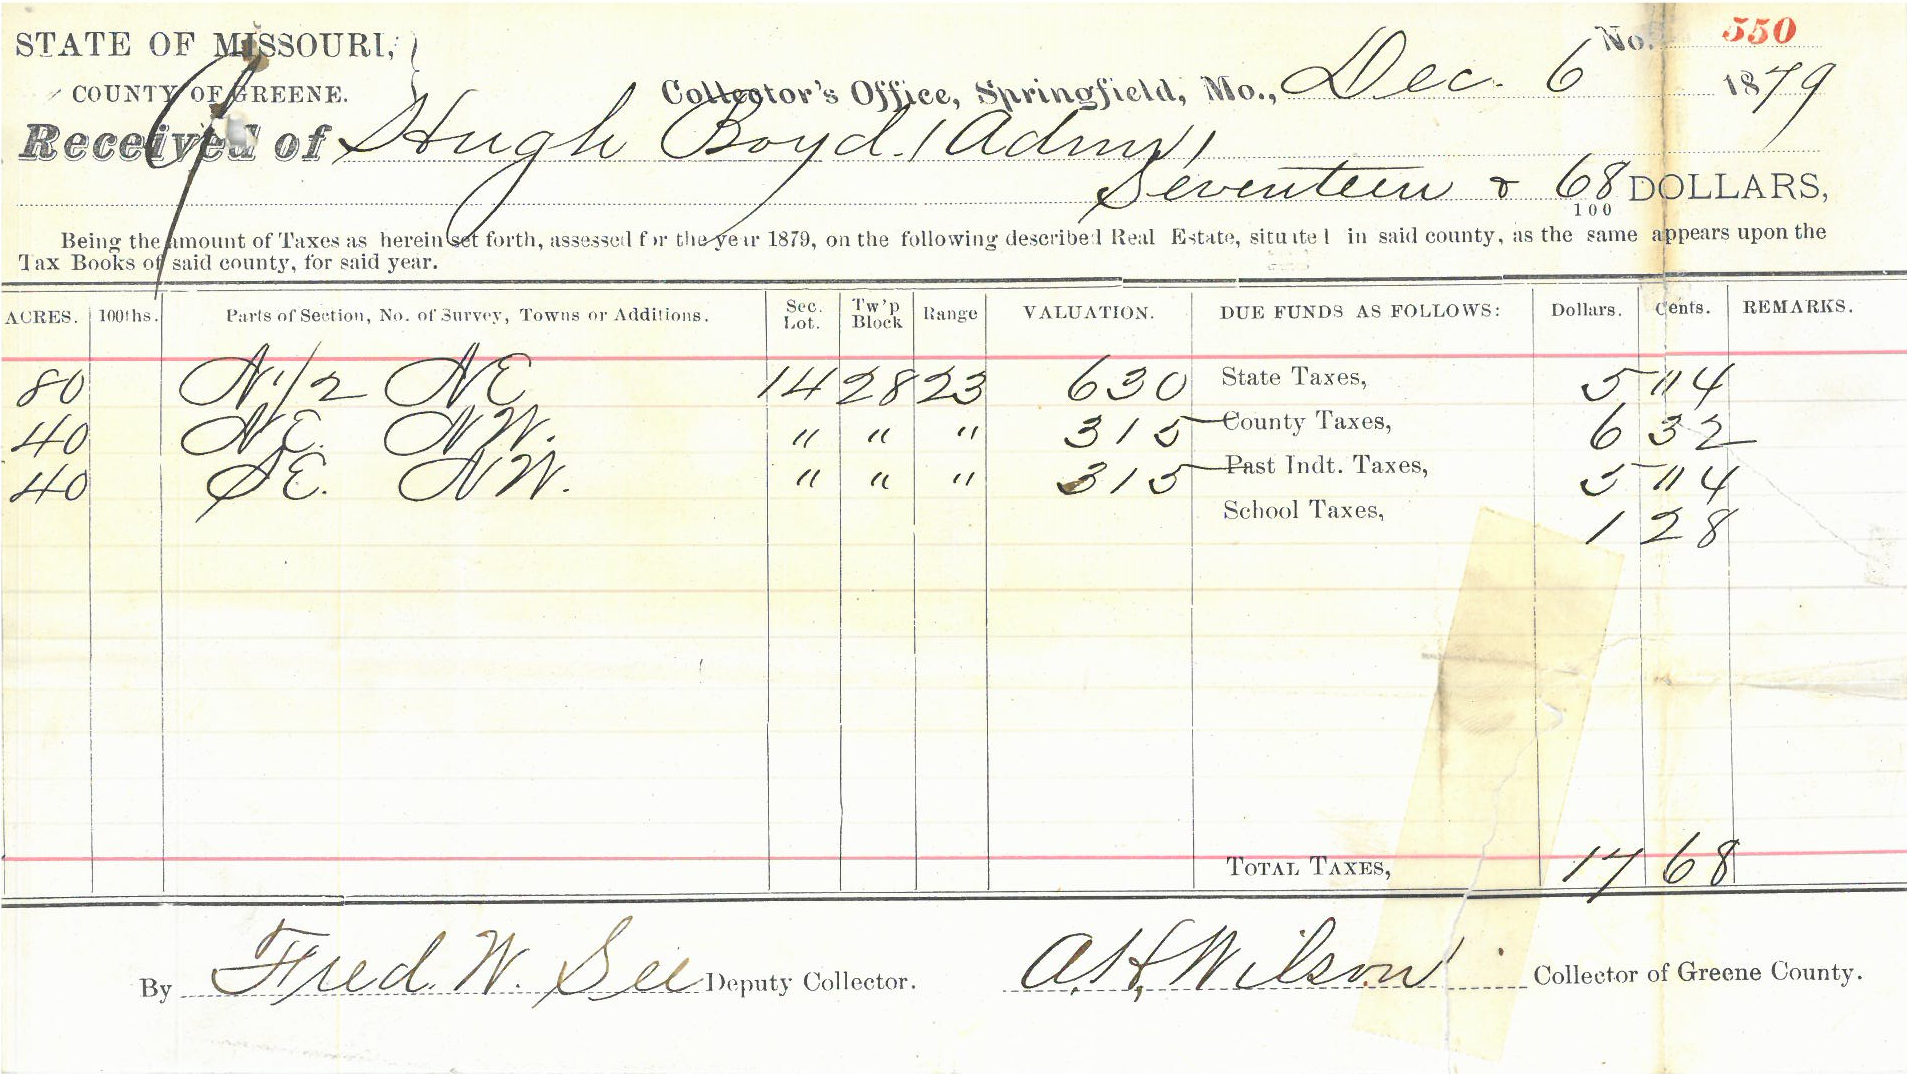 No. 550
STATE OF MISSOURI,
COUNTY OF GREENE.
Collector's Office, Springfield, Mo., Dec. 6 1879
Received of Hugh Boyd. (Admr)
Seventeen & 68/100 DOLLARS,
Being the amount of Taxes as herein set forth, assessed for the year 1879, on the following described Real Estate, situated in said county, as the same appears upon the
Tax Books of said county, for said year.
ACRES. 100ths. Parts of Section, No. of Survey, Towns or Additions. Sec. Lot. Tw'p Block Range VALUATION. DUE FUNDS AS FOLLOWS: Dollars. Cents. REMARKS.
80 N 1/2 NE 14 28 23 630 State Taxes, 5 "4
40 NE. NW. " " " 315 County Taxes, 6 32
40 SE. NW. " " " 315 Past Indt. Taxes, 5 "4
School Taxes, 1 28
TOTAL TAXES, 17 68
By Fred. W. See Deputy Collector. A.H. Wilson Collector of Greene County.